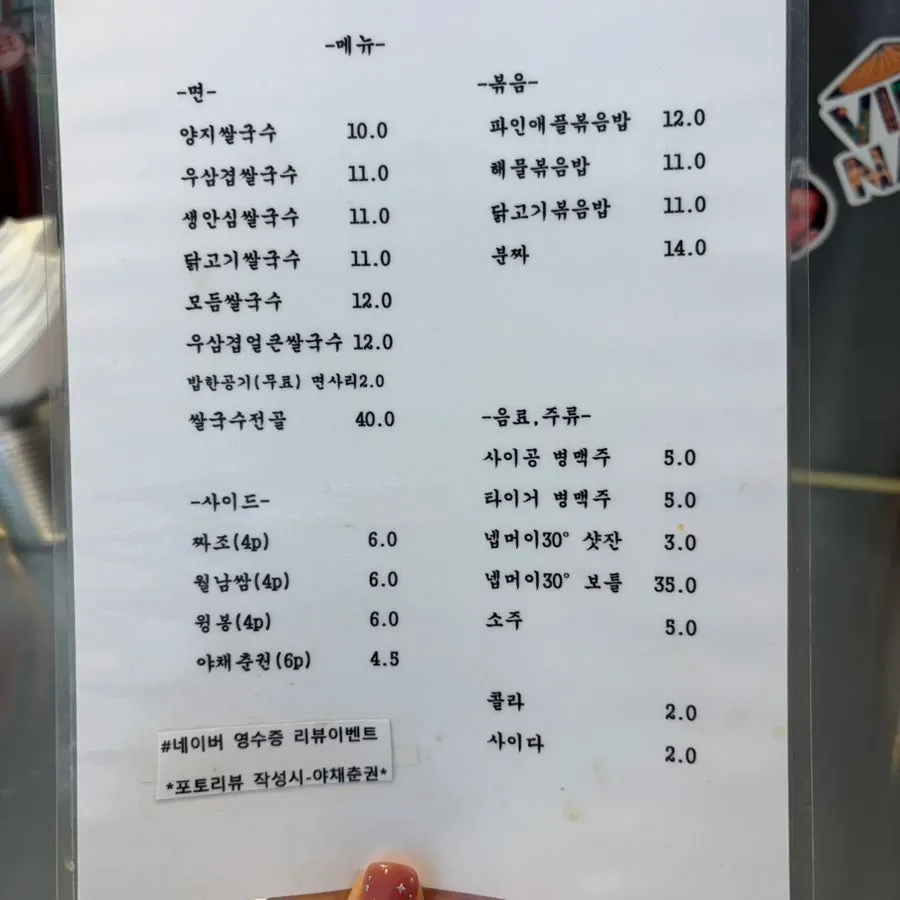 -메뉴-
-면-
양지쌀국수 10.0
우삼겹쌀국수 11.0
생안심쌀국수 11.0
닭고기쌀국수 11.0
모듬쌀국수 12.0
우삼겹얼큰쌀국수 12.0
밥한공기(무료) 면사리2.0
쌀국수전골 40.0
-사이드-
짜조(4p) 6.0
월남쌈(4p) 6.0
윙봉(4p) 6.0
야채춘권(6p) 4.5
#네이버 영수증 리뷰이벤트
*포토리뷰 작성시-야채춘권*
-볶음-
파인애플볶음밥 12.0
해물볶음밥 11.0
닭고기볶음밥 11.0
분짜 14.0
-음료,주류-
사이공 병맥주 5.0
타이거 병맥주 5.0
넵머이30° 샷잔 3.0
넵머이30° 보틀 35.0
소주 5.0
콜라 2.0
사이다 2.0